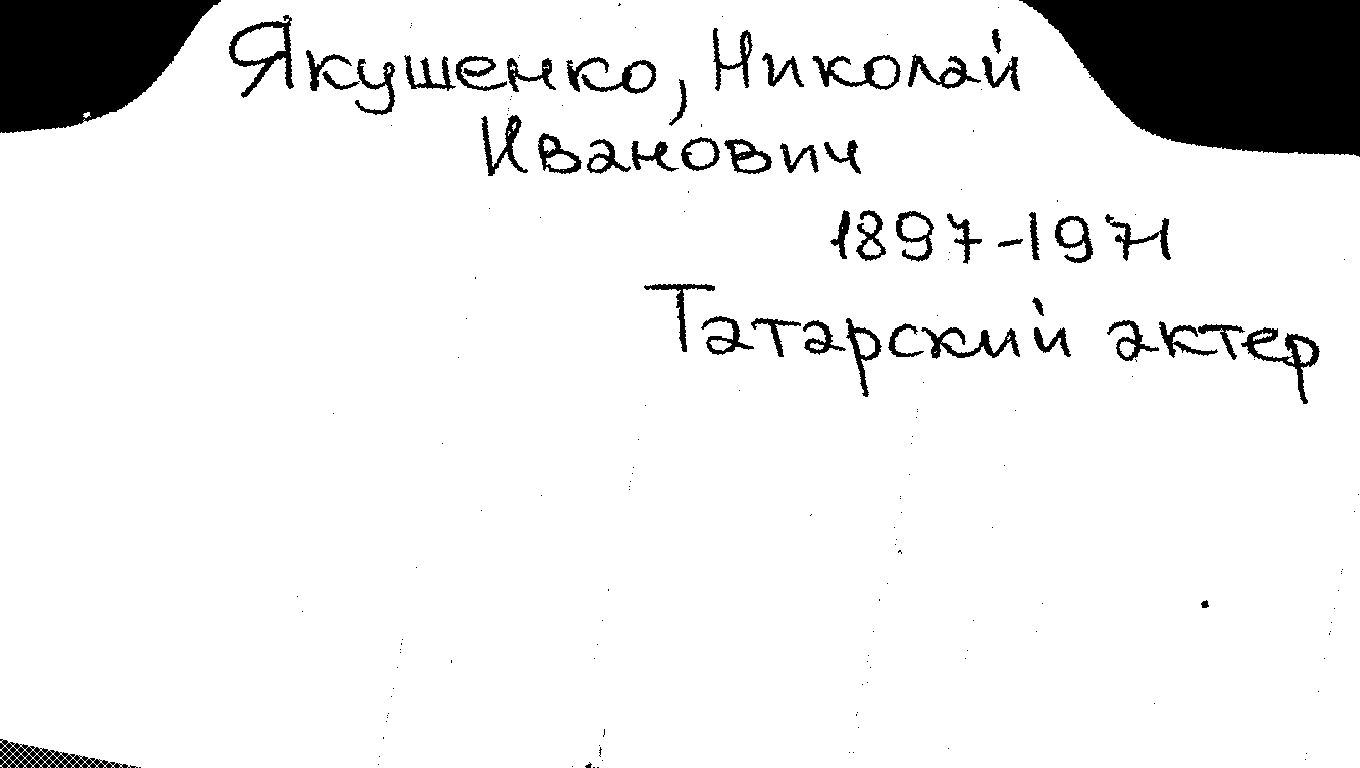 Якушенко, Николай
Иванович
1897-1971
Татарский актер